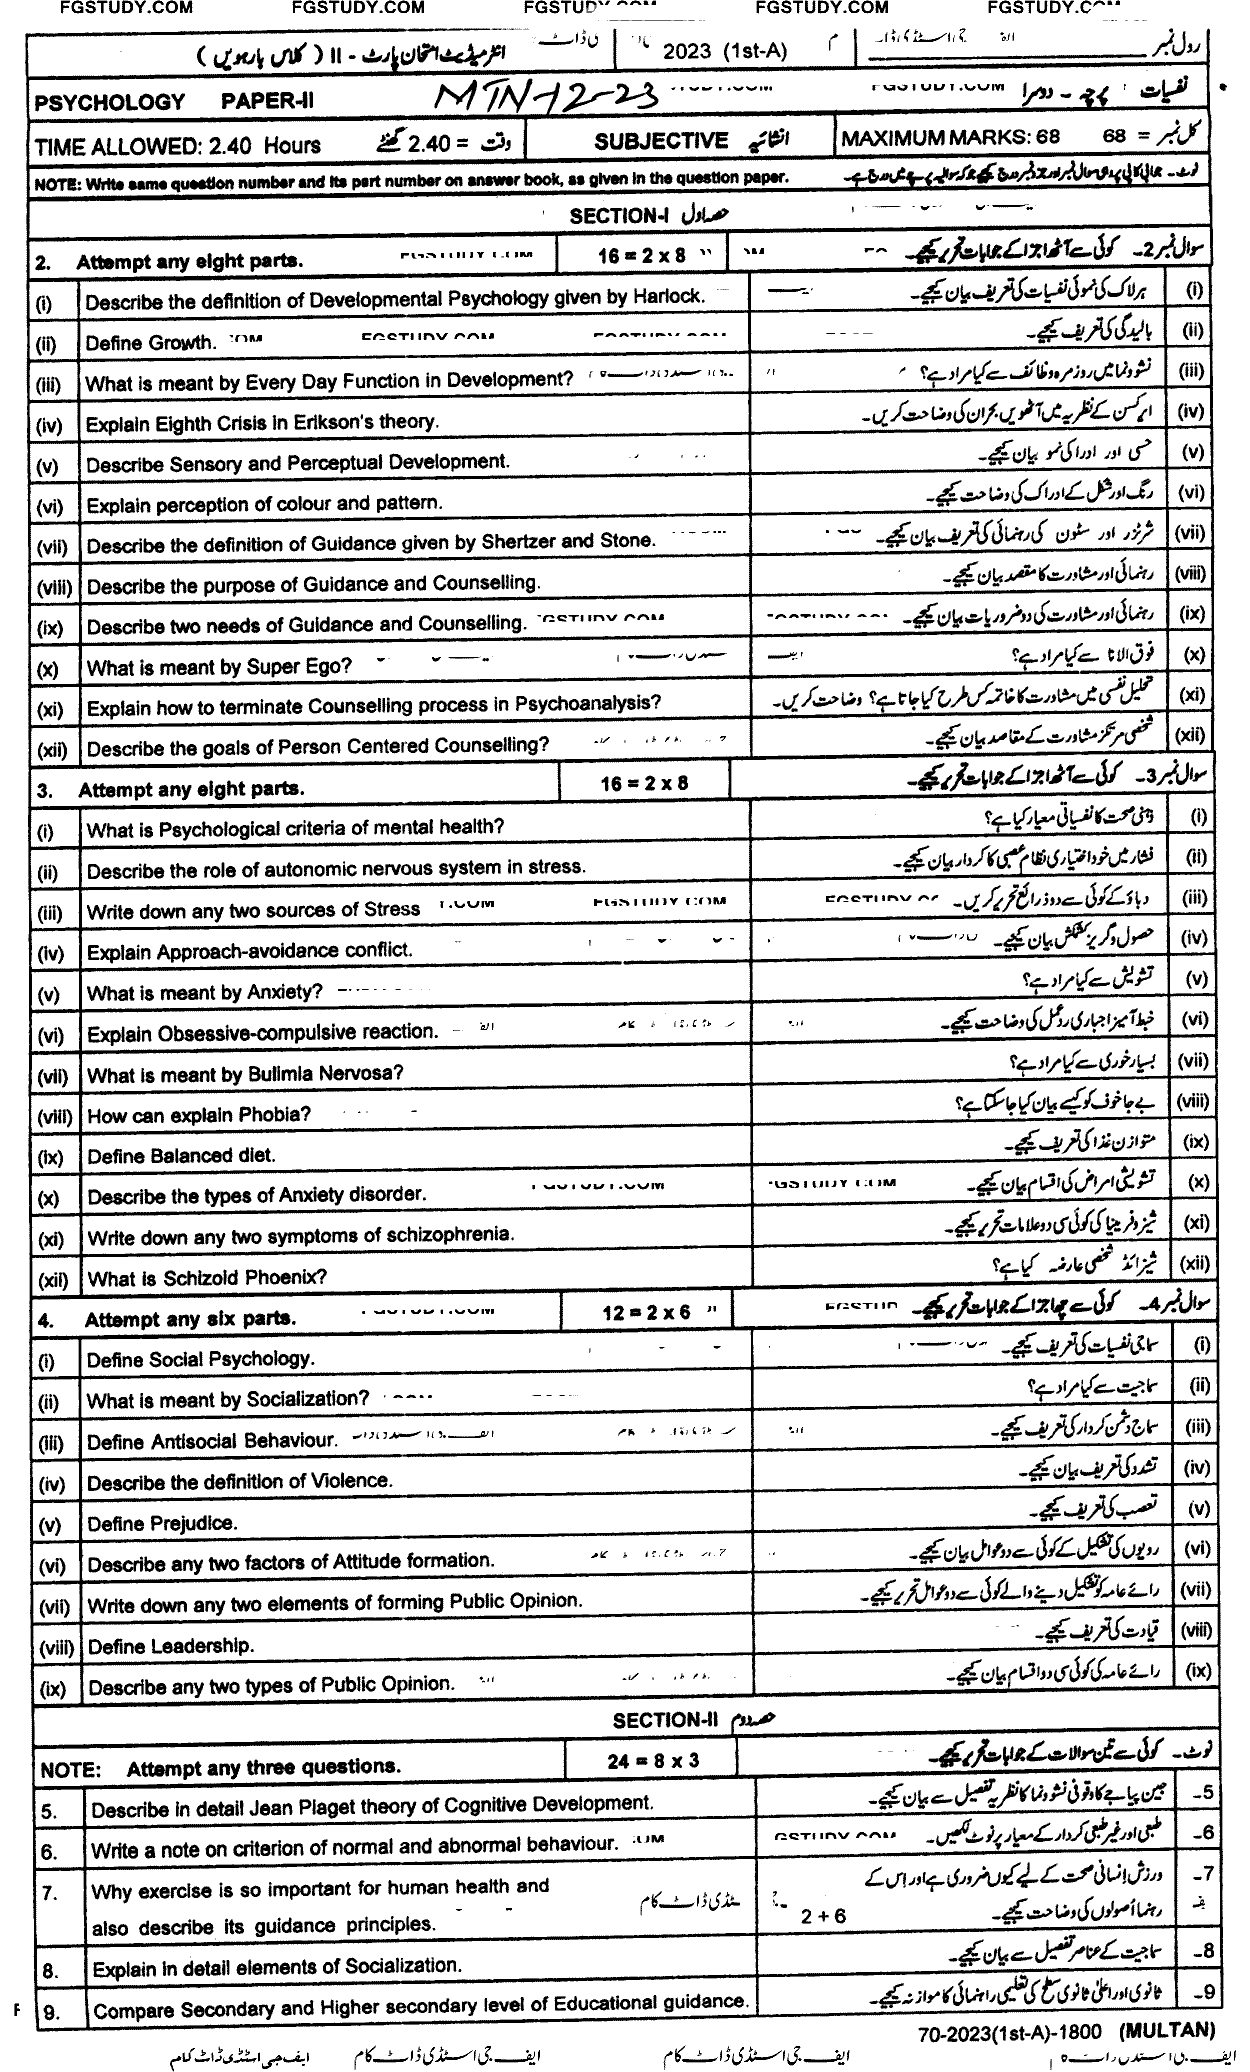 FGSTUDY.COM FGSTUDY.COM FGSTUDY.COM FGSTUDY.COM
رول نمبر 2023 (1st-A) انٹرمیڈیٹ امتحان پارٹ - II ( کلاس بارہویں )
PSYCHOLOGY PAPER-II MTN-12-23 نفسیات پرچہ - دوسرا
TIME ALLOWED: 2.40 Hours وقت = 2.40 گھنٹے SUBJECTIVE انشائیہ MAXIMUM MARKS: 68 کل نمبر = 68
NOTE: Write same question number and its part number on answer book, as given in the question paper. نوٹ۔ جوابی کاپی پر وہی سوال نمبر اور جزو نمبر درج کیجیے جو کہ سوالیہ پرچے میں درج ہے۔
SECTION-I حصہ اول
2. Attempt any eight parts. 16 = 2 x 8 سوال نمبر 2۔ کوئی سے آٹھ اجزا کے جوابات تحریر کیجیے۔
(i) Describe the definition of Developmental Psychology given by Harlock. ہرلاک کی نموئی نفسیات کی تعریف بیان کیجیے۔ (i)
(ii) Define Growth. بالیدگی کی تعریف کیجیے۔ (ii)
(iii) What is meant by Every Day Function in Development? نشوونما میں روزمرہ وظائف سے کیا مراد ہے؟ (iii)
(iv) Explain Eighth Crisis in Erikson's theory. ایرکسن کے نظریہ میں آٹھویں بحران کی وضاحت کریں۔ (iv)
(v) Describe Sensory and Perceptual Development. حسی اور ادراکی نمو بیان کیجیے۔ (v)
(vi) Explain perception of colour and pattern. رنگ اور شکل کے ادراک کی وضاحت کیجیے۔ (vi)
(vii) Describe the definition of Guidance given by Shertzer and Stone. شرٹزر اور سٹون کی رہنمائی کی تعریف بیان کیجیے۔ (vii)
(viii) Describe the purpose of Guidance and Counselling. رہنمائی اور مشاورت کا مقصد بیان کیجیے۔ (viii)
(ix) Describe two needs of Guidance and Counselling. رہنمائی اور مشاورت کی دو ضروریات بیان کیجیے۔ (ix)
(x) What is meant by Super Ego? فوق الانا سے کیا مراد ہے؟ (x)
(xi) Explain how to terminate Counselling process in Psychoanalysis? تحلیل نفسی میں مشاورت کا خاتمہ کس طرح کیا جاتا ہے؟ وضاحت کریں۔ (xi)
(xii) Describe the goals of Person Centered Counselling? شخصی مرتکز مشاورت کے مقاصد بیان کیجیے۔ (xii)
3. Attempt any eight parts. 16 = 2 x 8 سوال نمبر 3۔ کوئی سے آٹھ اجزا کے جوابات تحریر کیجیے۔
(i) What is Psychological criteria of mental health? ذہنی صحت کا نفسیاتی معیار کیا ہے؟ (i)
(ii) Describe the role of autonomic nervous system in stress. فشار میں خود اختیاری نظام عصبی کا کردار بیان کیجیے۔ (ii)
(iii) Write down any two sources of Stress دباؤ کے کوئی سے دو ذرائع تحریر کریں۔ (iii)
(iv) Explain Approach-avoidance conflict. حصول و گریز کشمکش بیان کیجیے۔ (iv)
(v) What is meant by Anxiety? تشویش سے کیا مراد ہے؟ (v)
(vi) Explain Obsessive-compulsive reaction. خبط آمیز اجباری ردعمل کی وضاحت کیجیے۔ (vi)
(vii) What is meant by Bulimia Nervosa? بسیار خوری سے کیا مراد ہے؟ (vii)
(viii) How can explain Phobia? بے جا خوف کو کیسے بیان کیا جاسکتا ہے؟ (viii)
(ix) Define Balanced diet. متوازن غذا کی تعریف کیجیے۔ (ix)
(x) Describe the types of Anxiety disorder. تشویشی امراض کی اقسام بیان کیجیے۔ (x)
(xi) Write down any two symptoms of schizophrenia. شیزوفرینیا کی کوئی سی دو علامات تحریر کیجیے۔ (xi)
(xii) What is Schizoid Phoenix? شیزائڈ شخصی عارضہ کیا ہے؟ (xii)
4. Attempt any six parts. 12 = 2 x 6 سوال نمبر 4۔ کوئی سے چھ اجزا کے جوابات تحریر کیجیے۔
(i) Define Social Psychology. سماجی نفسیات کی تعریف کیجیے۔ (i)
(ii) What is meant by Socialization? سماجیت سے کیا مراد ہے؟ (ii)
(iii) Define Antisocial Behaviour. سماج دشمن کردار کی تعریف کیجیے۔ (iii)
(iv) Describe the definition of Violence. تشدد کی تعریف بیان کیجیے۔ (iv)
(v) Define Prejudice. تعصب کی تعریف کیجیے۔ (v)
(vi) Describe any two factors of Attitude formation. رویوں کی تشکیل کے کوئی سے دو عوامل بیان کیجیے۔ (vi)
(vii) Write down any two elements of forming Public Opinion. رائے عامہ کو تشکیل دینے والے کوئی سے دو عوامل تحریر کیجیے۔ (vii)
(viii) Define Leadership. قیادت کی تعریف کیجیے۔ (viii)
(ix) Describe any two types of Public Opinion. رائے عامہ کی کوئی سی دو اقسام بیان کیجیے۔ (ix)
SECTION-II حصہ دوم
NOTE: Attempt any three questions. 24 = 8 x 3 نوٹ۔ کوئی سے تین سوالات کے جوابات تحریر کیجیے۔
5. Describe in detail Jean Piaget theory of Cognitive Development. جین پیاجے کا وقوفی نشوونما کا نظریہ تفصیل سے بیان کیجیے۔ 5۔
6. Write a note on criterion of normal and abnormal behaviour. طبعی اور غیر طبعی کردار کے معیار پر نوٹ لکھیں۔ 6۔
7. Why exercise is so important for human health and ورزش انسانی صحت کے لیے کیوں ضروری ہے اور اس کے 7۔
also describe its guidance principles. 2 + 6 رہنما اصولوں کی وضاحت کیجیے۔
8. Explain in detail elements of Socialization. سماجیت کے عناصر تفصیل سے بیان کیجیے۔ 8۔
9. Compare Secondary and Higher secondary level of Educational guidance. ثانوی اور اعلیٰ ثانوی سطح کی تعلیمی راہنمائی کا موازنہ کیجیے۔ 9۔
70-2023(1st-A)-1800 (MULTAN)
ایف جی اسٹڈی ڈاٹ کام ایف جی اسٹڈی ڈاٹ کام ایف جی اسٹڈی ڈاٹ کام